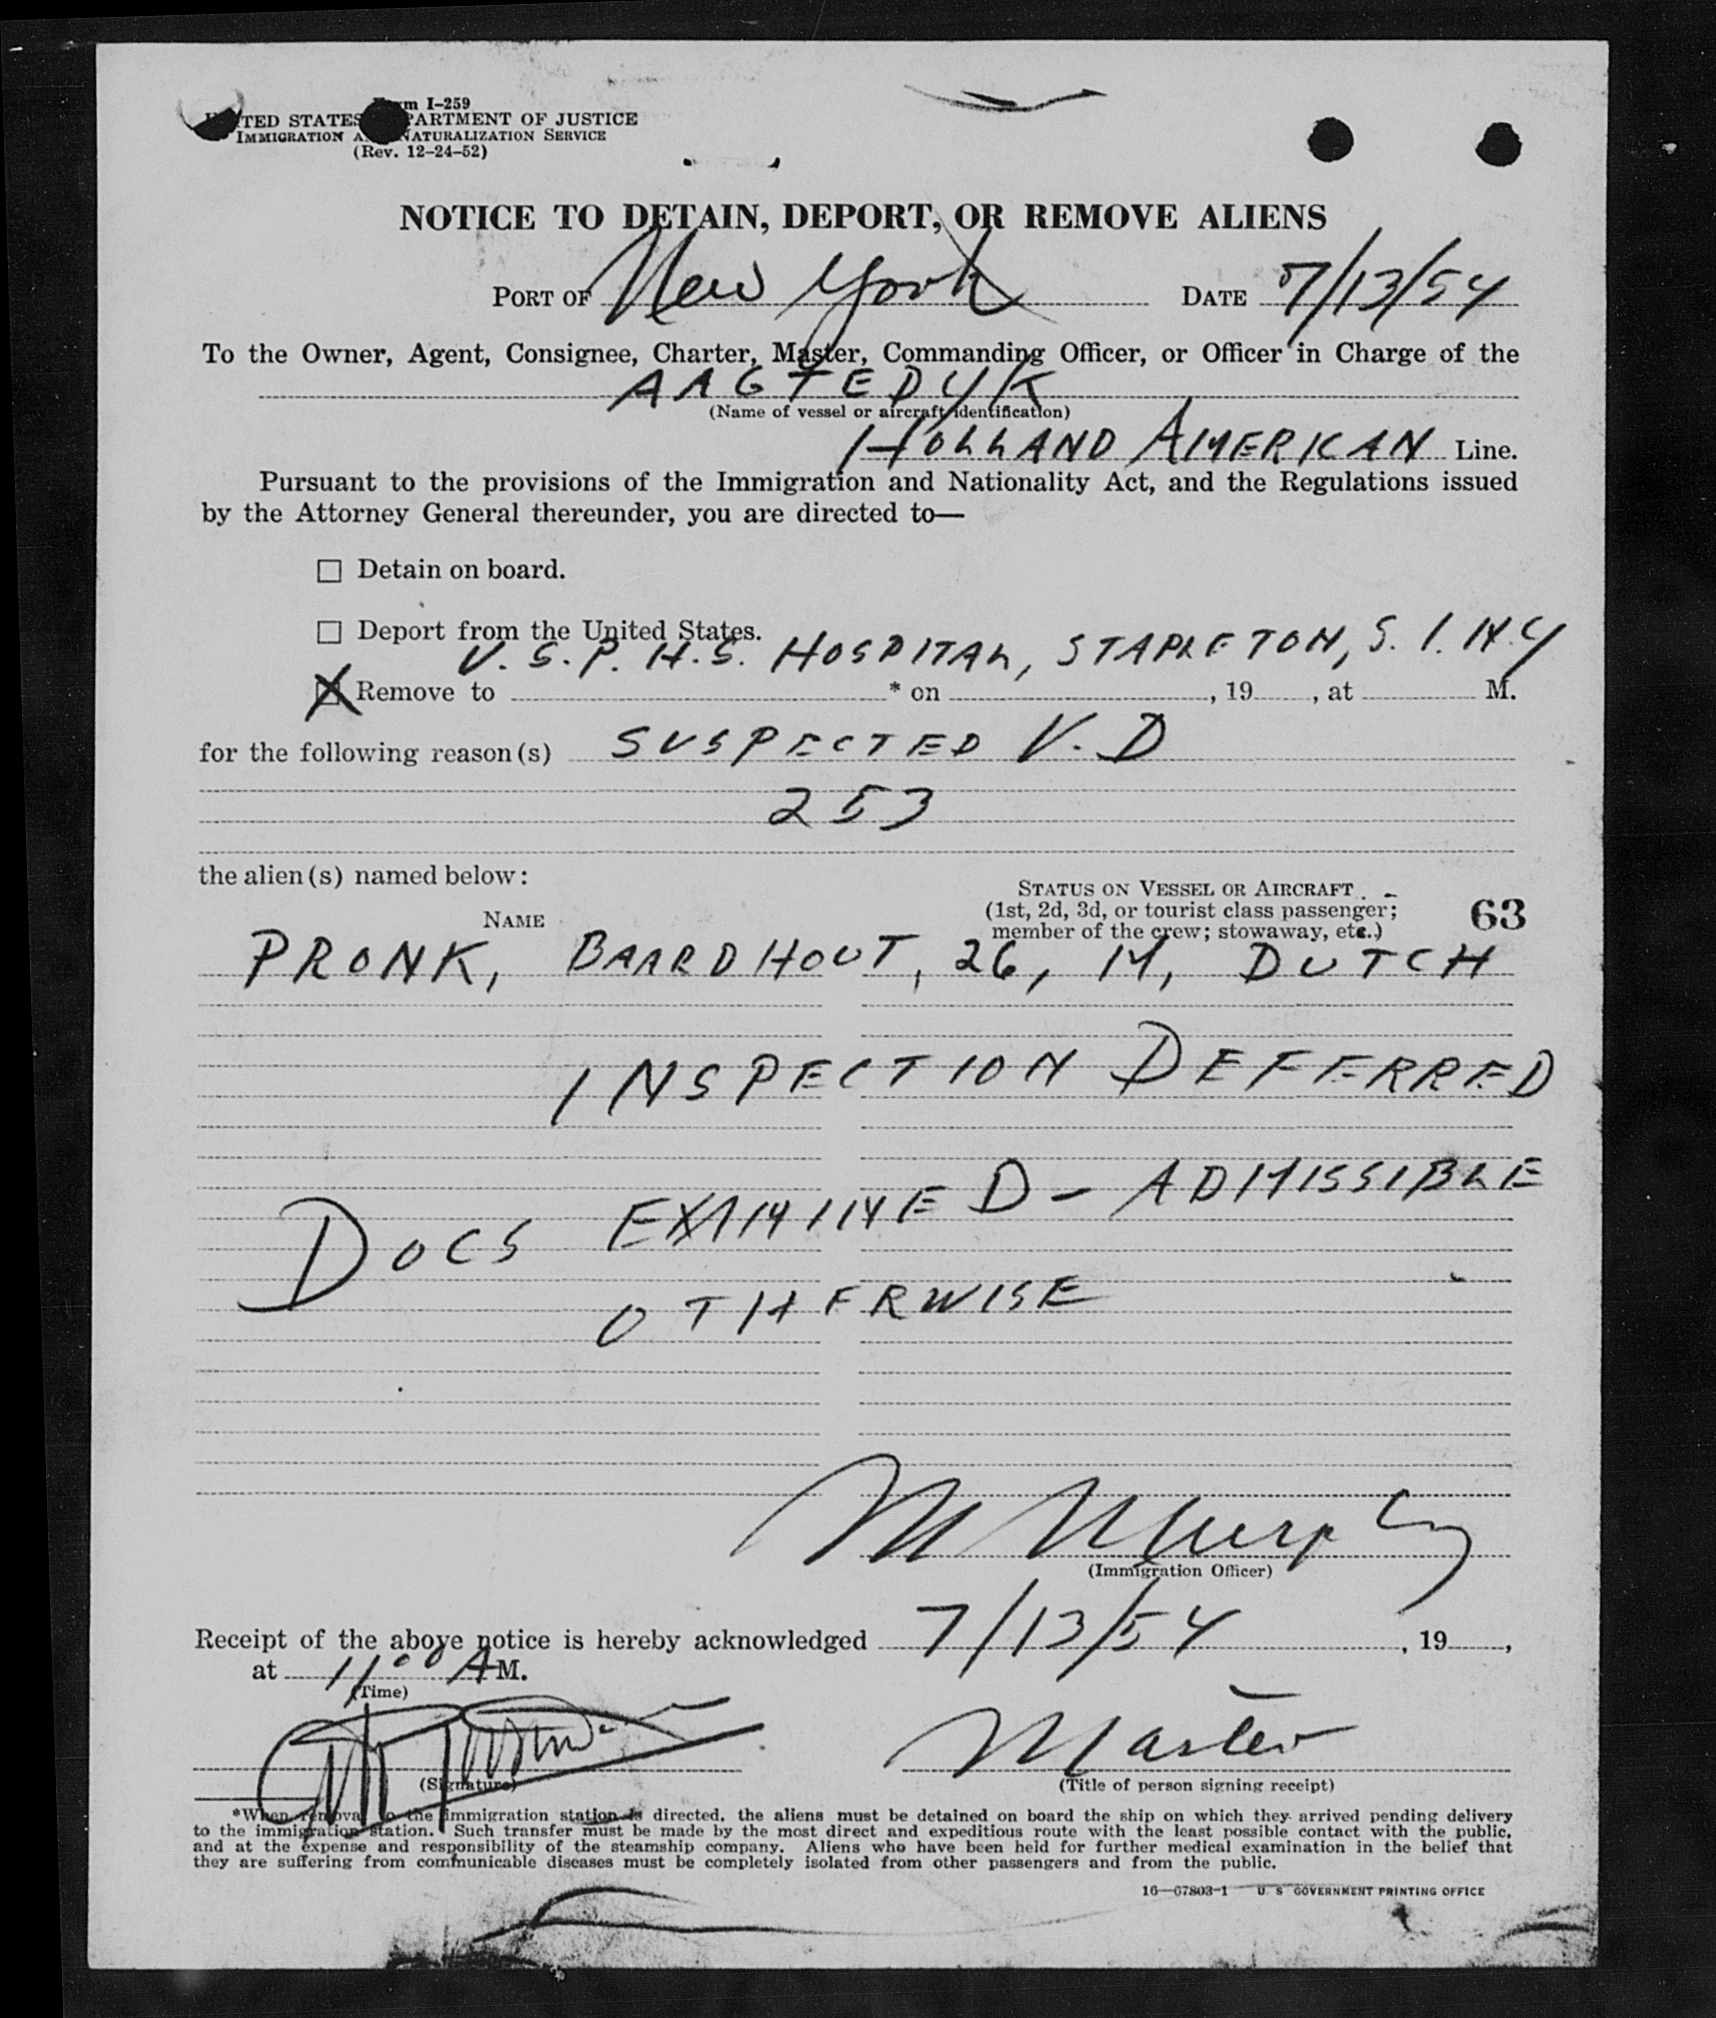 Form I-259
UNITED STATES DEPARTMENT OF JUSTICE
IMMIGRATION AND NATURALIZATION SERVICE
(Rev. 12-24-52)
NOTICE TO DETAIN, DEPORT, OR REMOVE ALIENS
PORT OF New York DATE 7/13/54
To the Owner, Agent, Consignee, Charter, Master, Commanding Officer, or Officer in Charge of the
AAGTEDYK
(Name of vessel or aircraft identification)
HOLLAND AMERICAN Line.
Pursuant to the provisions of the Immigration and Nationality Act, and the Regulations issued
by the Attorney General thereunder, you are directed to—
☐ Detain on board.
☐ Deport from the United States.
U.S.P.H.S. HOSPITAL, STAPLETON, S.I. N.Y
☒ Remove to * on , 19 , at M.
for the following reason(s) SUSPECTED V.D
253
the alien(s) named below:
STATUS ON VESSEL OR AIRCRAFT
NAME (1st, 2d, 3d, or tourist class passenger; 63
member of the crew; stowaway, etc.)
PRONK, BAARDHOUT, 26, M, DUTCH
INSPECTION DEFERRED
DOCS EXAMINED - ADMISSIBLE
OTHERWISE
M Murphy
(Immigration Officer)
Receipt of the above notice is hereby acknowledged 7/13/54 , 19 ,
at 11 00 A M.
(Time)
Master
(Signature) (Title of person signing receipt)
*When removal to the immigration station is directed, the aliens must be detained on board the ship on which they arrived pending delivery
to the immigration station. Such transfer must be made by the most direct and expeditious route with the least possible contact with the public,
and at the expense and responsibility of the steamship company. Aliens who have been held for further medical examination in the belief that
they are suffering from communicable diseases must be completely isolated from other passengers and from the public.
16—67803-1 U. S. GOVERNMENT PRINTING OFFICE